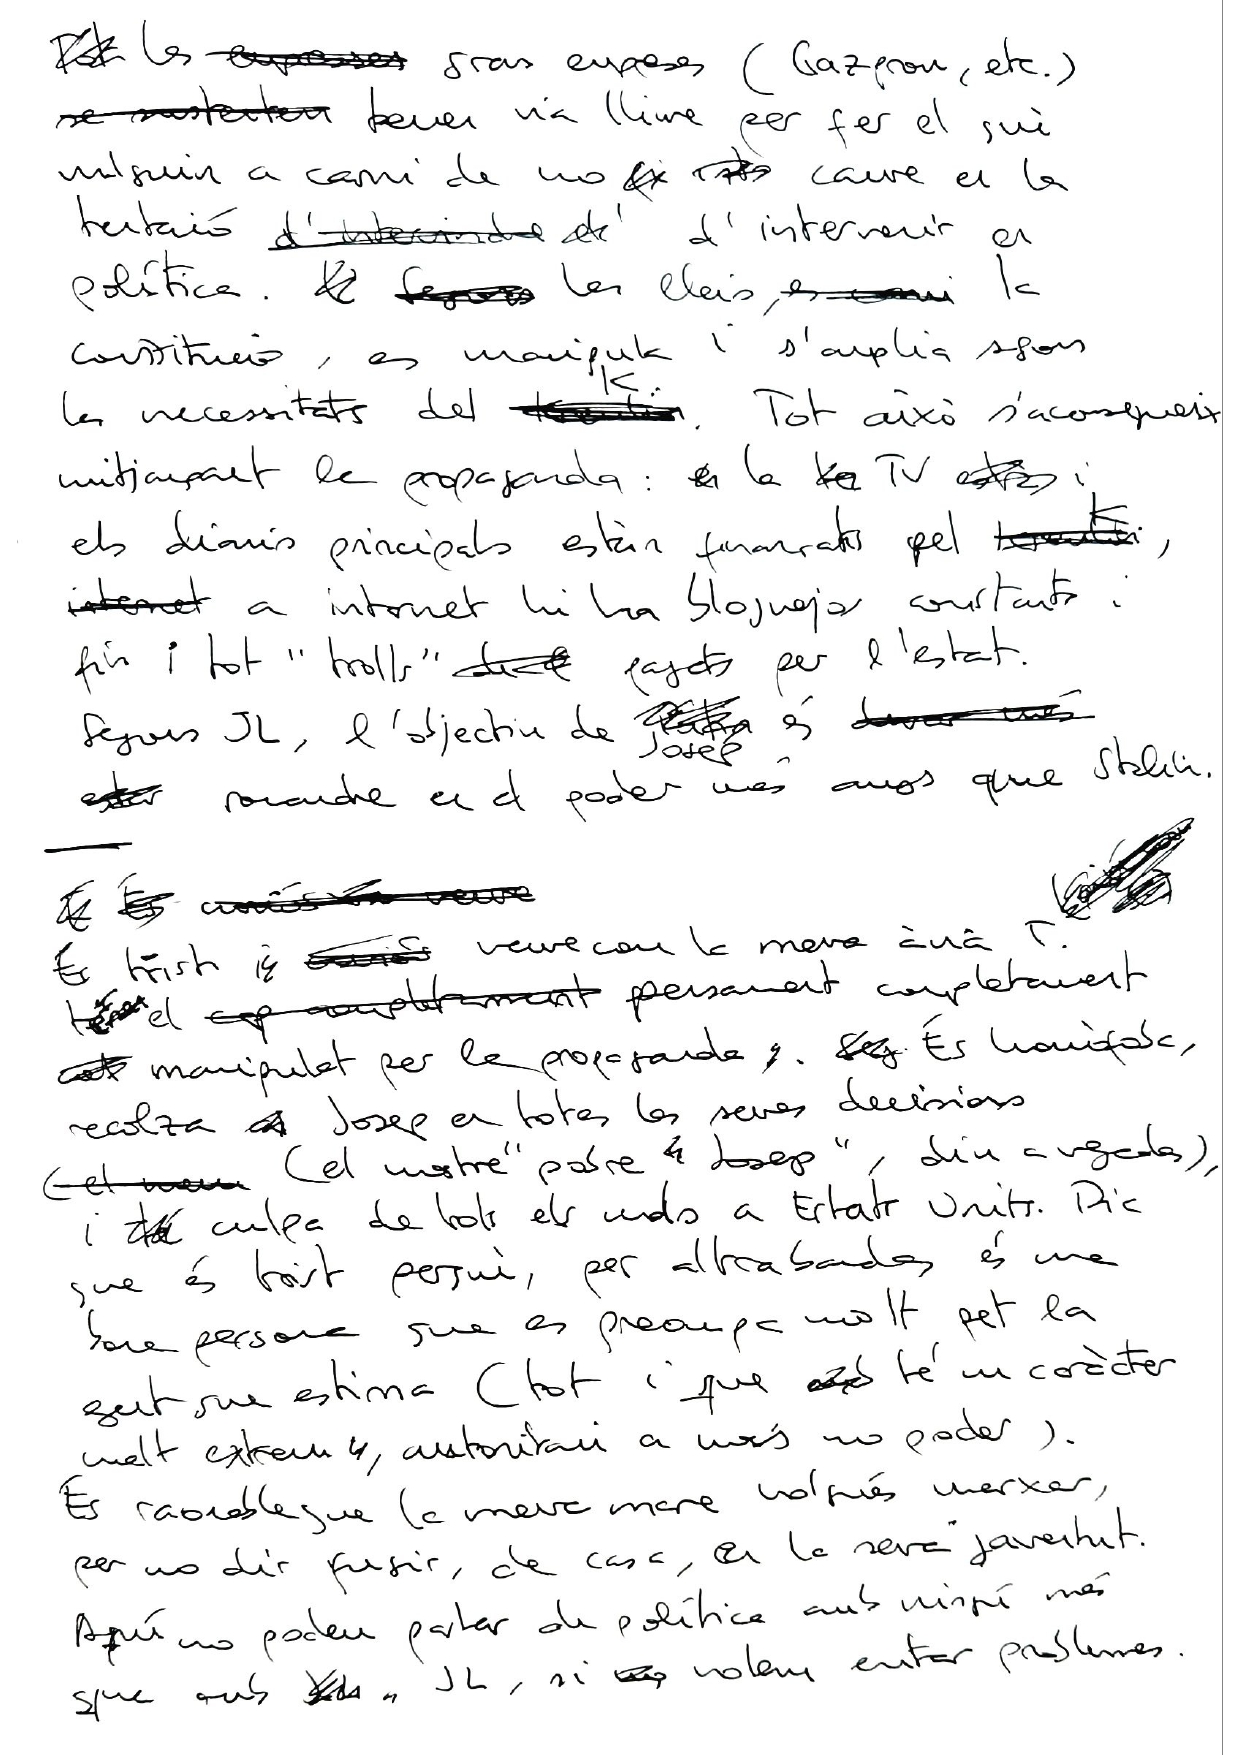 les empreses grans empeses (Gazprom, etc.)
se sustenten tenen via lliure per fer el què
vulguin a canvi de no caure en la
tentació d'intervindre de d'intervenir en
política. Segons les lleis, es canvi la
constitució, es manipula i s'amplia segons
les necessitats del kremlin K. Tot això s'aconsegueix
mitjançant la propaganda: en la TV i
els diaris principals estàn finançats pel kremlin K,
internet a internet hi ha bloquejos constants i
fin i tot "trolls" pagats per l'estat.
Segons JL, l'objectiu de Josep és durar més
estar romandre en el poder més anys que Stalin.
És veure
És trist veure com la meva àvia T.
té el completament pensament completament
manipulat per la propaganda. És homòfoba,
recolza a Josep en totes les seves decisions
(el meu (el nostre "pobre Josep", diu a vegades),
i culpa de tots els mals a Estats Units. Dic
que és trist perquè, per altra banda és una
bona persona que es preocupa molt pet la
gent que estima (tot i que té un caràcter
molt extrem, autoritari a més no poder).
És raonable que la meva mare volgués marxar,
per no dir fugir, de casa, en la seva joventut.
Aquí no podem parlar de política amb ningú més
que amb JL, si no volem evitar problemes.